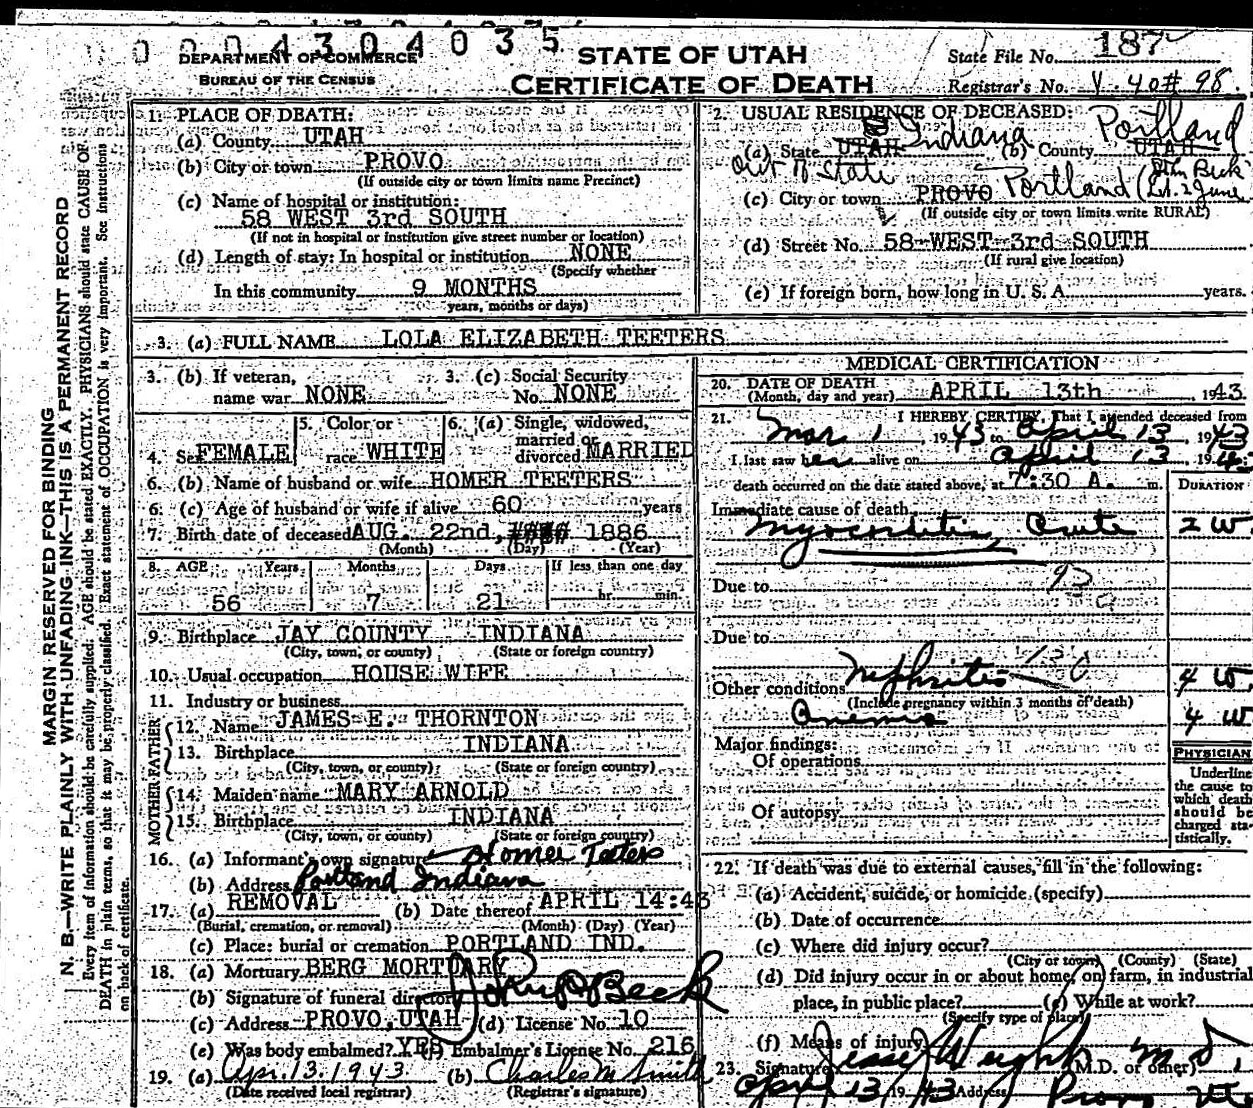 0 0 0 4 3 0 4 4 0 3 5
DEPARTMENT OF COMMERCE
BUREAU OF THE CENSUS
STATE OF UTAH
CERTIFICATE OF DEATH
State File No. 187
Registrar's No. V-40# 98
MARGIN RESERVED FOR BINDING
N. B.—WRITE PLAINLY WITH UNFADING INK—THIS IS A PERMANENT RECORD
Every item of information should be carefully supplied. AGE should be stated EXACTLY. PHYSICIANS should state CAUSE OF
DEATH in plain terms, so that it may be properly classified. Exact statement of OCCUPATION is very important. See instructions
on back of certificate.
1. PLACE OF DEATH:
(a) County UTAH
(b) City or town PROVO
(If outside city or town limits name Precinct)
(c) Name of hospital or institution:
58 WEST 3rd SOUTH
(If not in hospital or institution give street number or location)
(d) Length of stay: In hospital or institution NONE
(Specify whether
In this community 9 MONTHS
years, months or days)
2. USUAL RESIDENCE OF DECEASED:
(a) State UTAH Indiana (b) County UTAH Portland
Out of State
(c) City or town PROVO Portland (Beck Let. 2 June
(If outside city or town limits write RURAL)
(d) Street No. 58 WEST 3rd SOUTH
(If rural give location)
(e) If foreign born, how long in U. S. A. years.
3. (a) FULL NAME LOLA ELIZABETH TEETERS
3. (b) If veteran, name war NONE
3. (c) Social Security No. NONE
4. Sex FEMALE
5. Color or race WHITE
6. (a) Single, widowed, married or divorced MARRIED
6. (b) Name of husband or wife HOMER TEETERS
6. (c) Age of husband or wife if alive 60 years
7. Birth date of deceased AUG. 22nd, #### 1886
(Month) (Day) (Year)
8. AGE Years Months Days If less than one day
56 7 21 hr. min.
9. Birthplace JAY COUNTY INDIANA
(City, town, or county) (State or foreign country)
10. Usual occupation HOUSE WIFE
11. Industry or business
FATHER
12. Name JAMES E. THORNTON
13. Birthplace INDIANA
(City, town, or county) (State or foreign country)
MOTHER
14. Maiden name MARY ARNOLD
15. Birthplace INDIANA
(City, town, or county) (State or foreign country)
16. (a) Informant's own signature Homer Teeters
(b) Address Portland Indiana
17. (a) REMOVAL (b) Date thereof APRIL 14:43
(Burial, cremation, or removal) (Month) (Day) (Year)
(c) Place: burial or cremation PORTLAND IND.
18. (a) Mortuary BERG MORTUARY
(b) Signature of funeral director Beck
(c) Address PROVO, UTAH (d) License No. 10
(e) Was body embalmed? YES (f) Embalmer's License No. 216
19. (a) Apr. 13. 1943 (b) Charles M Smith
(Date received local registrar) (Registrar's signature)
MEDICAL CERTIFICATION
20. DATE OF DEATH
(Month, day and year) APRIL 13th, 1943.
21. I HEREBY CERTIFY, That I attended deceased from
Mar 1, 1943 to April 13, 1943
I last saw her alive on April 13, 1943
death occurred on the date stated above, at 7:30 A. m.
DURATION
Immediate cause of death
Myocarditis, Acute 2 W
Due to 93
Due to
Other conditions Nephritis 130 4 W.
(Include pregnancy within 3 months of death)
Anemia 4 W
Major findings:
Of operations
Of autopsy
PHYSICIAN
Underline
the cause to
which death
should be
charged sta-
tistically.
22. If death was due to external causes, fill in the following:
(a) Accident, suicide, or homicide (specify)
(b) Date of occurrence
(c) Where did injury occur?
(City or town) (County) (State)
(d) Did injury occur in or about home, on farm, in industrial
place, in public place? (e) While at work?
(Specify type of place)
(f) Means of injury
23. Signature Jesse Weight M D (M.D. or other)
April 13 1943 Address Provo